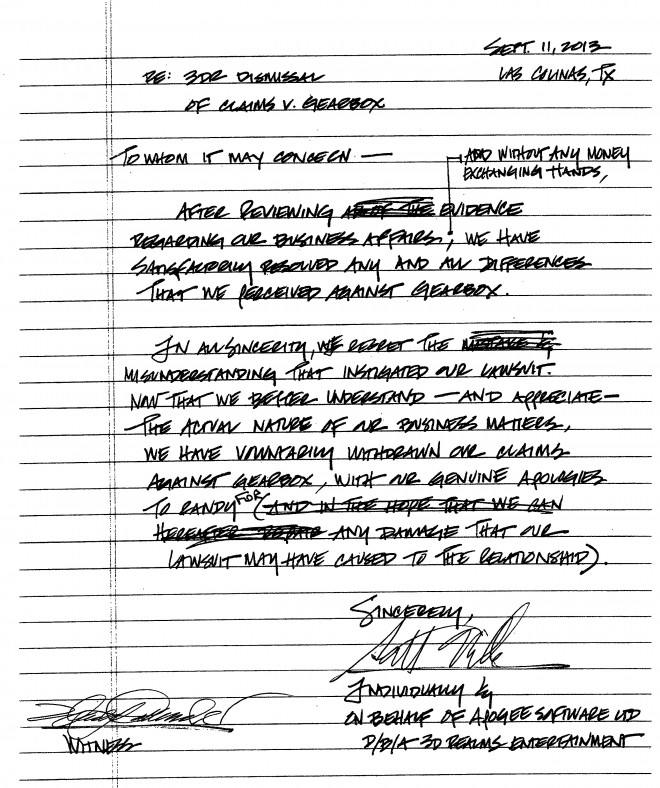 SEPT. 11, 2013
LAS COLINAS, TX
RE: 3DR DISMISSAL
OF CLAIMS V. GEARBOX
TO WHOM IT MAY CONCERN —
AND WITHOUT ANY MONEY
EXCHANGING HANDS,
AFTER REVIEWING ALL OF THE EVIDENCE
REGARDING OUR BUSINESS AFFAIRS, WE HAVE
SATISFACTORILY RESOLVED ANY AND ALL DIFFERENCES
THAT WE PERCEIVED AGAINST GEARBOX.
IN ALL SINCERITY, WE REGRET THE MISTAKE &
MISUNDERSTANDING THAT INSTIGATED OUR LAWSUIT.
NOW THAT WE BETTER UNDERSTAND — AND APPRECIATE —
THE ACTUAL NATURE OF OUR BUSINESS MATTERS,
WE HAVE VOLUNTARILY WITHDRAWN OUR CLAIMS
AGAINST GEARBOX, WITH OUR GENUINE APOLOGIES
TO RANDY FOR (AND IN THE HOPE THAT WE CAN
HEREAFTER REPAIR ANY DAMAGE THAT OUR
LAWSUIT MAY HAVE CAUSED TO THE RELATIONSHIP).
SINCERELY,
INDIVIDUALLY &
ON BEHALF OF APOGEE SOFTWARE LTD
D/B/A 3D REALMS ENTERTAINMENT
WITNESS